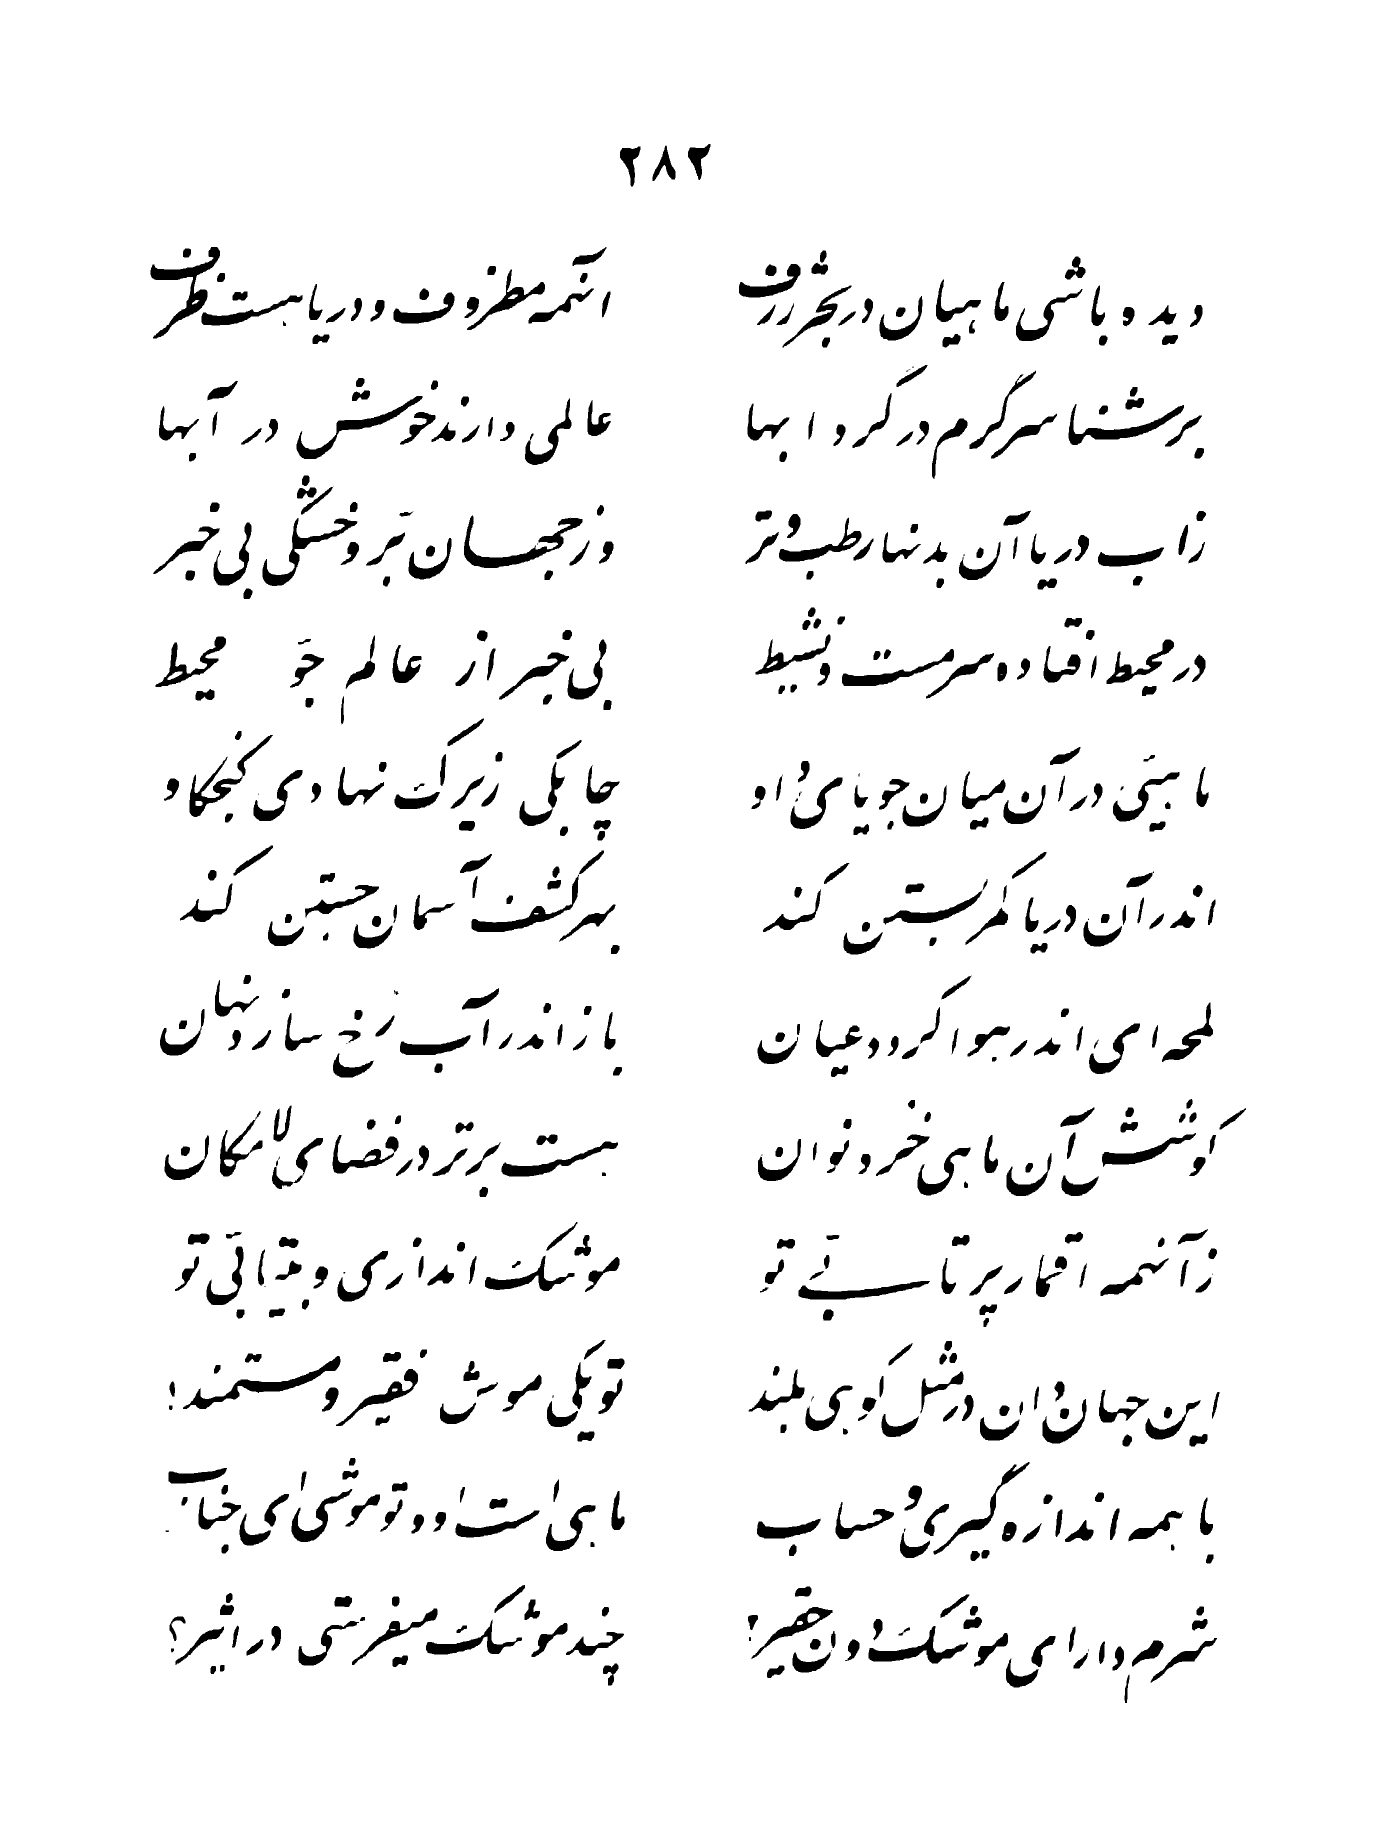 ۲۸۲
دیده باشی ماهیان در بحر ژرف
آنهمه مظروف و دریا هست ظرف
بر شنا سرگرم در گردابها
عالمی دارند خوش در آبها
زاب دریا آن بدنها رطب و تر
وز جهان بّر و خشگی بی خبر
در محیط افتاده سرمست و نشیط
بی خبر از عالم جوّ محیط
ماهیئی در آن میان جویای او
چابکی زیرک نهادی کنجکاو
اندر آن دریا کمر بستن کند
بهر کشف آسمان جستن کند
لمحه ای اندر هوا گردد عیان
باز اندر آب رخ سازد نهان
کوشش آن ماهی خرد نوان
هست برتر در فضای لا مکان
ز آنهمه اقمار پر تابیّ تو
موشک اندازی و بیتابیّ تو
این جهان و ان در مثل کوهی بلند
تو یکی موش فقیر و مستمند!
با همه اندازه گیری و حساب
ماهی است او و تو موشی ای جناب
شرم دار ای موشک دون حقیر!
چند موشک میفرستی در اثیر؟